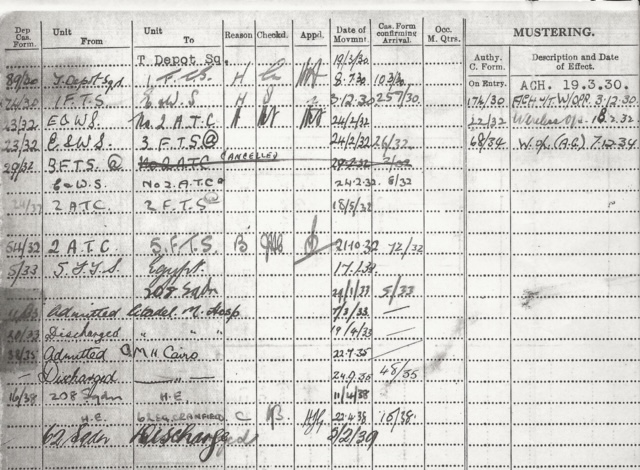 Dep Cas. Form. Unit From Unit To Reason Checkd. Appd. Date of Movmnt. Cas. Form confirming Arrival. Occ. M. Qtrs. MUSTERING.
Authy. C. Form. Description and Date of Effect.
T. Depot Sq. 19/3/30 On Entry. ACH. 19.3.30.
89/30 T. Depot Sqd 1 F.T.S. H 8.7.30 103/30
174/30 1 F.T.S. E & W.S. H 3/12.30 257/30 174/30 3/12.30
23/32 E & W.S. No. 2 A.T.C. 24/2/32 22/32 Wireless Op.
23/32 E & W.S. 3 F.T.S. @ 24/2/32 26/32 68/34 W. Op. 7.12.34
29/32 3 F.T.S. @ No 2 A.T.C. CANCELLED 29.2.32
E & W.S. No 2 A.T.C. 24.2.32 8/32
2 A.T.C. 2 F.T.S. @ 18/5/32
54/32 2 A.T.C. 5. F.T.S. B 21.10.32 72/32
5/33 5. F.T.S. Egypt.
208 Sqdn 5/33
Admitted Citadel M. Hosp 7/3/33
Discharged " " 19/4/33
Admitted @ M H Cairo 22.7.35
Discharged 24.9.35 48/35
16/38 208 Sqdn H.E. 11/4/38
H.E. 62 Sq. CRANFIELD C 22.4.38 16/38
62 Sqdn Discharged 2/39